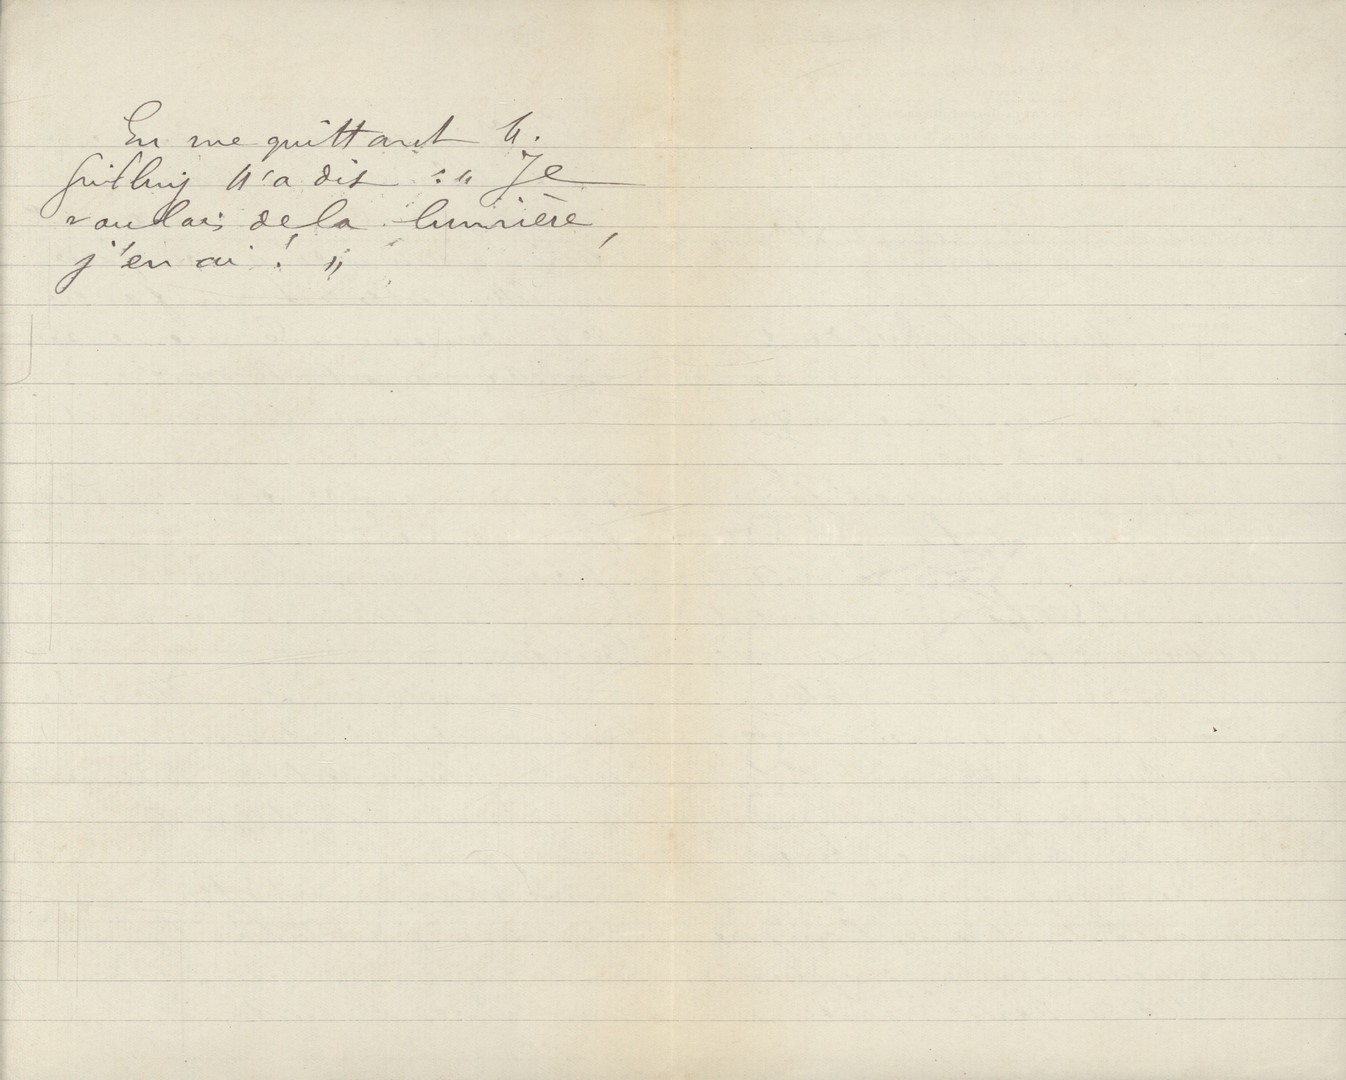 En me quittant M.
m'a dit : " Je
voulais de la lumière,
j'en ai ! "